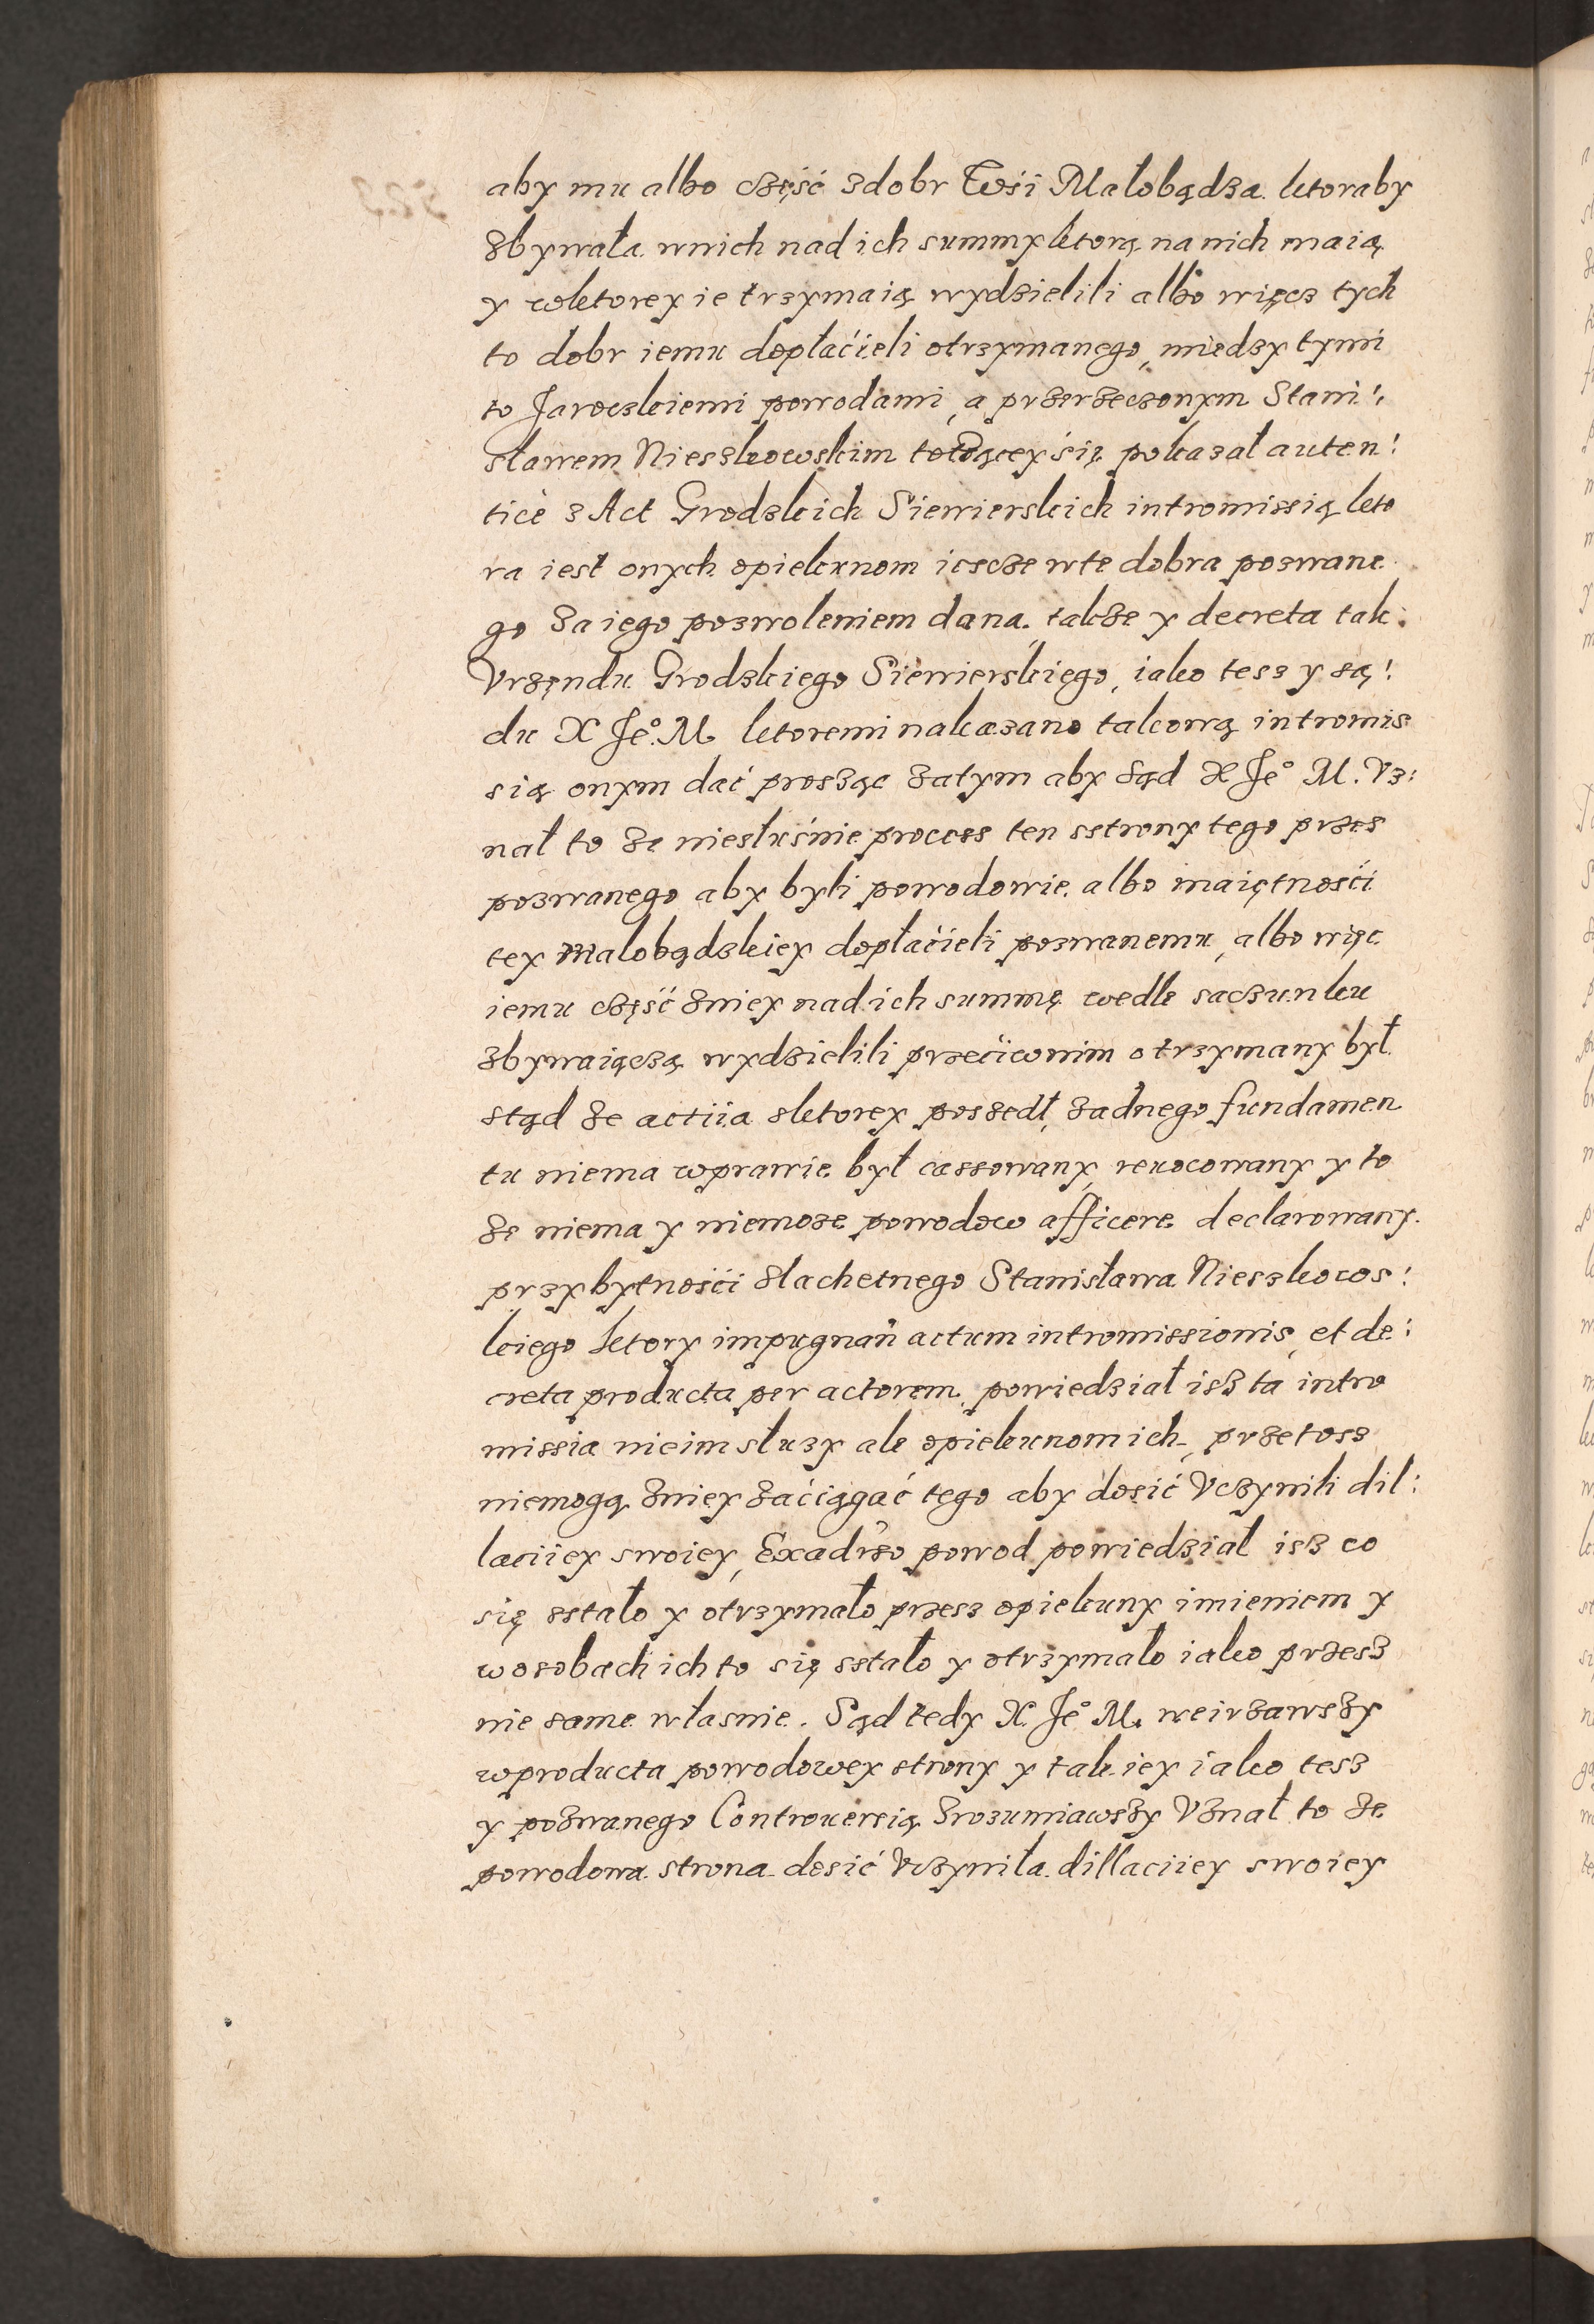 aby mu albo część z dobr Wśi Małobądza ktoraby
zbywała w nich nad ich summy ktorą na nich maią
y w ktorey ie trzymaią wydzielili albo więcz tych
to dobr iemu dopłaćieli otrzymanego, miedzy tymi
to Jarockiemi powodami, a przerzeczonym Stani:
sławem Nieszkowskim toczącey śię pokazał auten:
tice z Act Grodzkich Siewierskich intromissią kto
ra iest onych opiekunom iescze w te dobra pozwane
go za iego pozwoleniem dana, takze y decreta tak
Vrzęndu Grodzkiego Siewierskiego, iako tesz y są:
du X Je° M ktoremi nakazano takową intromis
sią onym dać prosząc zatym aby sąd X Je° M. Vz:
nał to ze niesłuśnie process ten sstrony tego przes
pozwanego aby byli powodowie albo maiętnośći
tey Malobądzkiey dopłaćieli pozwanemu, albo więc
iemu część zniey nad ich summę wedle saczunku
zbywaiączą wydzielili przećiwnim otrzymany był
stąd ze actiia sktorey poszedł, zadnego fundamen
tu niema wprawie był cassowany, reuocowany y to
ze niema y niemoze powodow afficere declarowany.
przybytnośći slachetnego Stanisława Nieszkows:
kiego ktory impugnan̄ actum intromissionis, et de:
creta producta per actorem, powiedział isz ta intro
missia nie im służy ale opiekunom ich, przetosz
niemogą zniey zaćiągać tego aby dosić Vczynili dil:
laciiey swoiey, Exadrso powod powiedział isz co
się sstało y otrzymało przesz opiekuny imieniem y
w osobach ich to się sstało y otrzymało iako przesz
nie same własnie. Sąd tedy X. Je° M. weirzawszy
w producta powodowey strony y tak iey iako tesz
y pozwanego Controuersią zrozumiawszy Vznał to ze
powodowa strona dosić Vczyniła dillaciiey swoiey